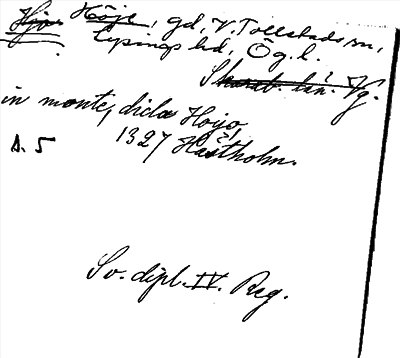 Hjo Höje, gd, V. Tollstads sn,
Lysings hd, Ög. l.
Skarab. län. Vg.
in monte, dicta Höjo,
1327 Hästholm.
A. 5
Sv. dipl. IV. Reg.